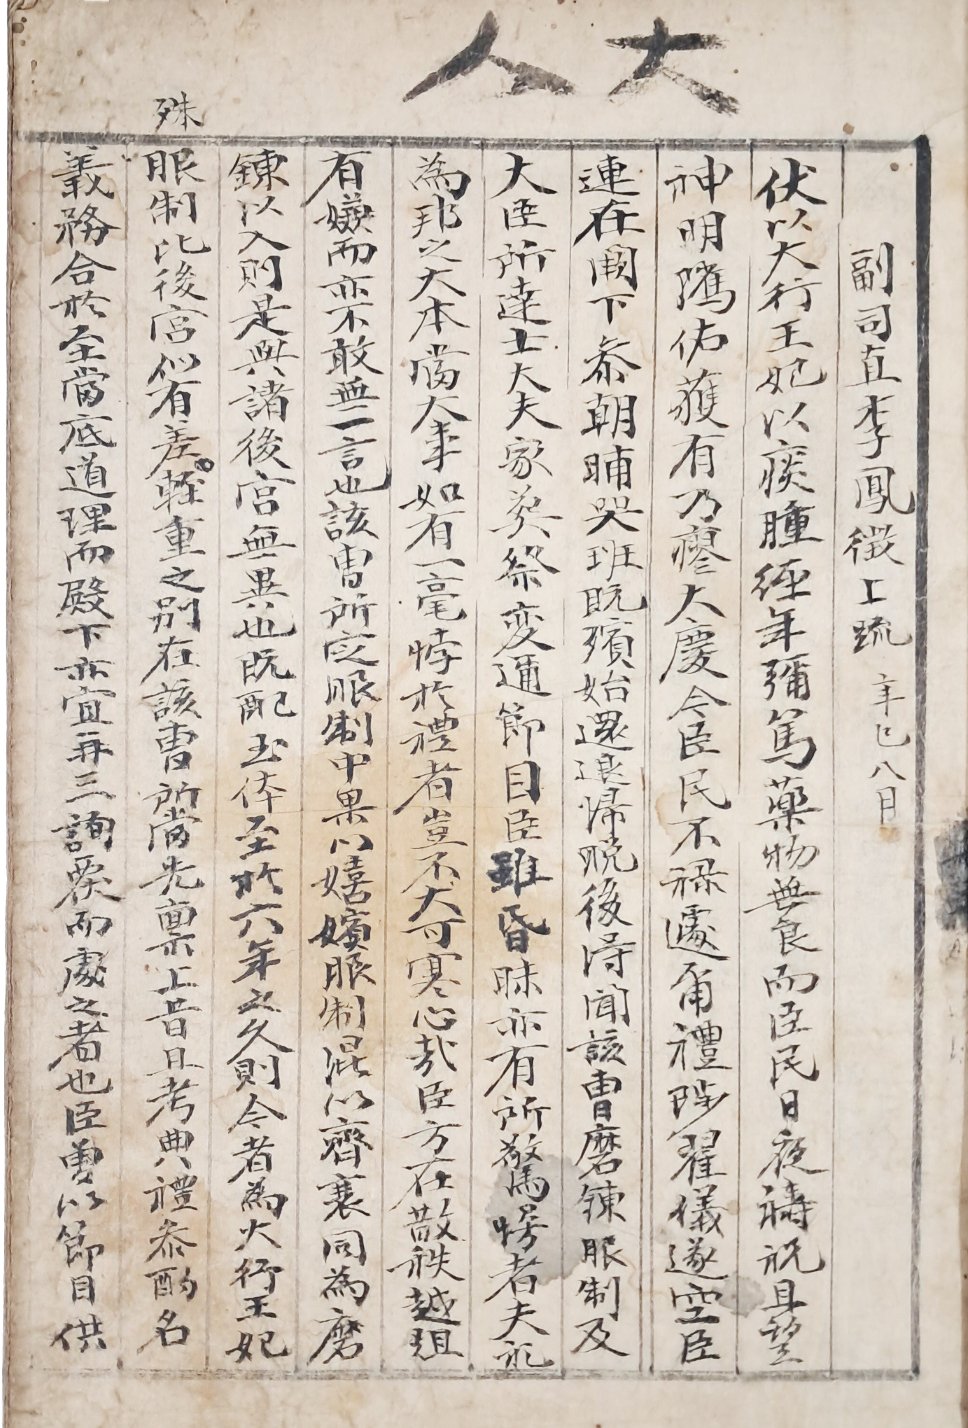 大人
副司直李鳳徵上疏 辛巳八月
伏以大行王妃以痰腫經年彌篤藥物無良而臣民日夜禱祝且望
神明隲佑獲有乃瘳大慶令臣民不祿遽爾禮陟翟儀遂空臣
連在闕下忝朝晡哭班旣殯始還退歸晩後得聞該曹磨鍊服制及
大臣所達士大夫家葬祭変通節目臣雖昏昧亦有所驚愕者夫礼
為邦之大本當大事如有一毫悖於禮者豈不大可寒心哉臣方在散秩越俎
有嫌而亦不敢無一言也該曹所定服制中果以嬉嬪服制混以齊衰同為磨
鍊以入則是與諸後宮無異也旣配玉体至於六年之久則今者為大行王妃
服制比後宮似有差輕重之別在該曹所當先稟上旨且考典禮叅酌名
殊
義務合於至當底道理而殿下亦宜再三詢衆而處之者也臣曾以節目供